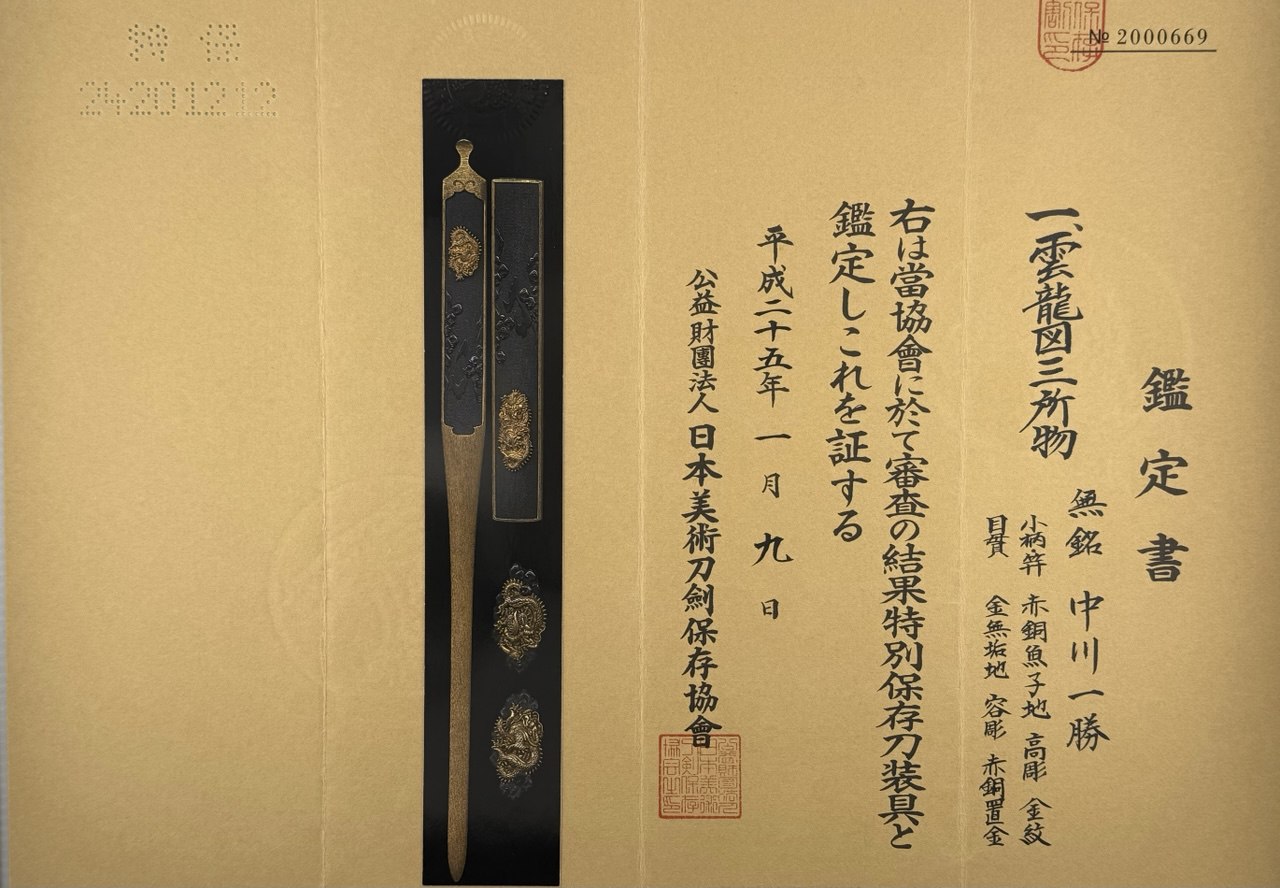 № 2000669
鑑定書
一、雲龍図三所物
無銘 中川一勝
小柄・笄 赤銅魚子地 高彫 金紋
目貫 金無垢地 容彫 赤銅置金
右は當協會に於て審査の結果特別保存刀装具と
鑑定しこれを証する
平成二十五年 一月 九日
公益財團法人 日本美術刀劍保存協會
特保
24201212